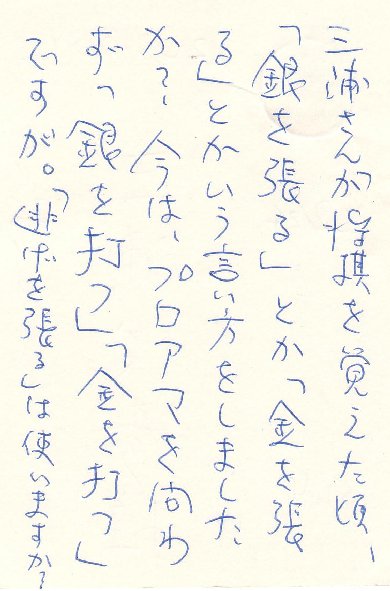 三浦さんが将棋を覚えた頃、
「銀を張る」とか「金を張
る」とかいう言い方をしました
か？、今は、プロアマを問わ
ず、「銀を打つ」「金を打つ」
ですが。「逃げを張る」は使いますか？